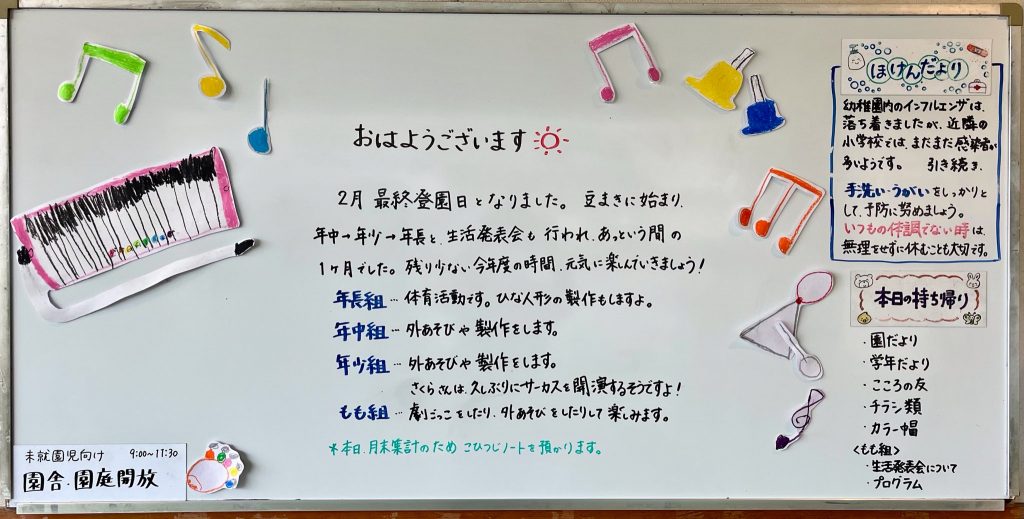 おはようございます
2月 最終登園日となりました。 豆まきに始まり、
年中→年少→年長と、生活発表会も 行われ、あっという間の
1ヶ月でした。 残り少ない今年度の時間、元気に楽しんでいきましょう!
年長組…体育活動です。ひな人形の製作もしますよ。
年中組…外あそびや製作をします。
年少組…外あそびや製作をします。
さくらさんは、久しぶりにサーカスを開演するそうですよ!
もも組…劇ごっこをしたり、外あそびをしたりして楽しみます。
*本日、月末集計のため こひつじノートを預かります。
未就園児向け 9:00~11:30
園舎・園庭開放
ほけんだより
幼稚園内のインフルエンザは、
落ち着きましたが、近隣の
小学校では、まだまだ感染者が
多いようです。 引き続き、
手洗い・うがいをしっかりと
して、予防に努めましょう。
いつもの体調でない時は、
無理をせずに休むことも大切です。
本日の持ち帰り
・園だより
・学年だより
・こころの友
・チラシ類
・カラー帽
<もも組>
・生活発表会について
・プログラム